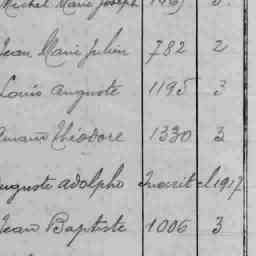 Michel Marie Joseph
Jean Marie Julien 782 2
Louis Auguste 1195 3
Théodore 1330 3
Auguste Adolphe Inscrit cl 1917
Jean Baptiste 1006 3